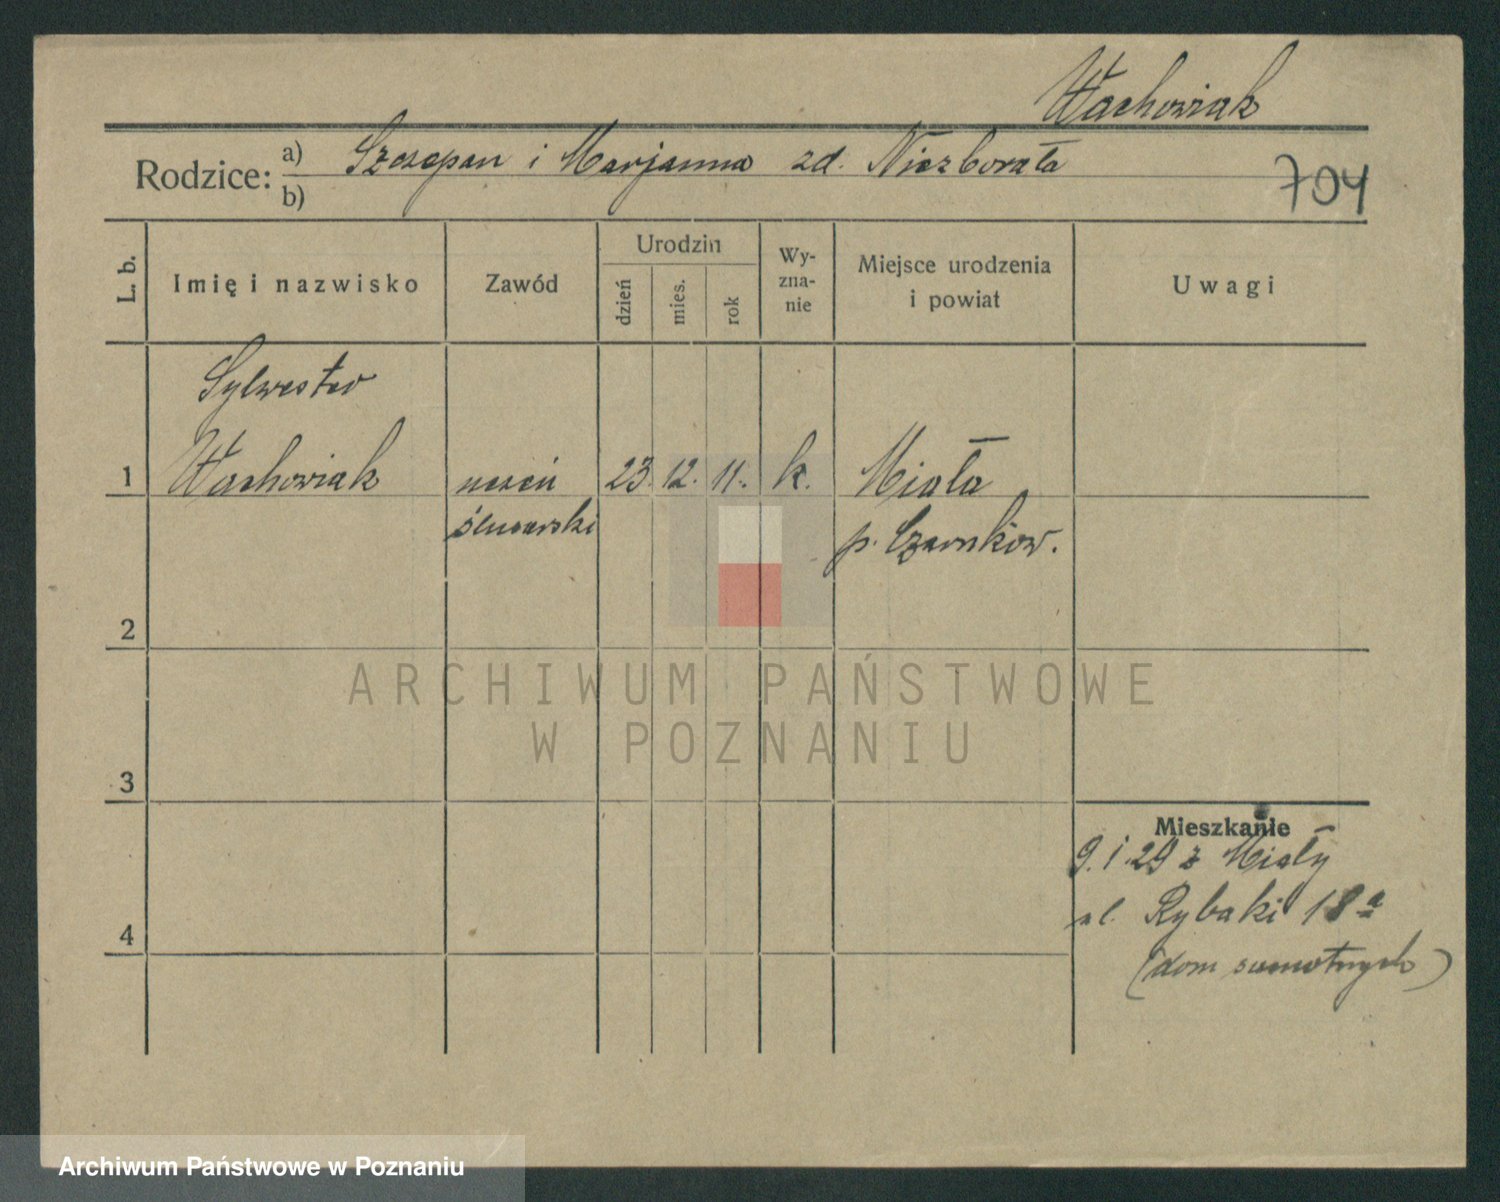 Wachowiak
Rodzice: a) Szczepan i Marjanna zd. Niezborała
b)
704
L. b.
Imię i nazwisko
Zawód
Urodzin
dzień
mies.
rok
Wy-
zna-
nie
Miejsce urodzenia
i powiat
Uwagi
Sylwester
1 Wachowiak uczeń 23. 12. 11. k. Miała
ślusarski p. Czarnków.
2
3
4
Mieszkanie
9.1.29 z Miały
ul. Rybaki 18a
(dom samotnych)
ARCHIWUM PAŃSTWOWE
W POZNANIU
Archiwum Państwowe w Poznaniu